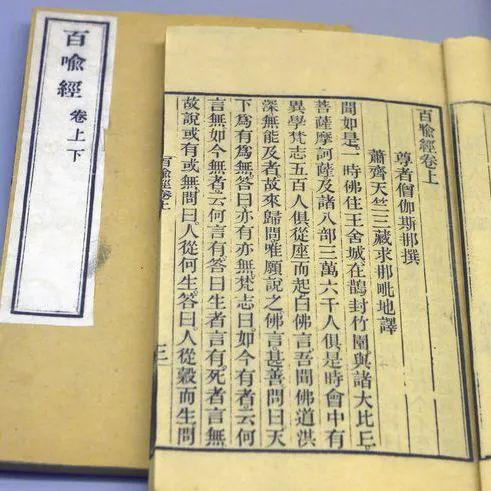 百喻經 卷上下
百喻經卷上
尊者僧伽斯那撰
蕭齊天竺三藏求那毗地譯
聞如是一時佛住王舍城在鵲封竹園與諸大比丘
菩薩摩訶薩及諸八部三萬六千人俱是時會中有
異學梵志五百人俱從座而起白佛言吾聞佛道洪
深無能及者故來歸問唯願說之佛言甚善問曰天
下爲有爲無答曰亦有亦無梵志曰如今有者云何
言無如今無者云何言有答曰生者言有死者言無
故說或有或無問曰人從何生答曰人從穀而生問
百喻經卷上